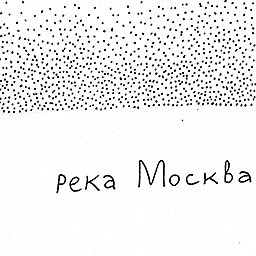 река Москва